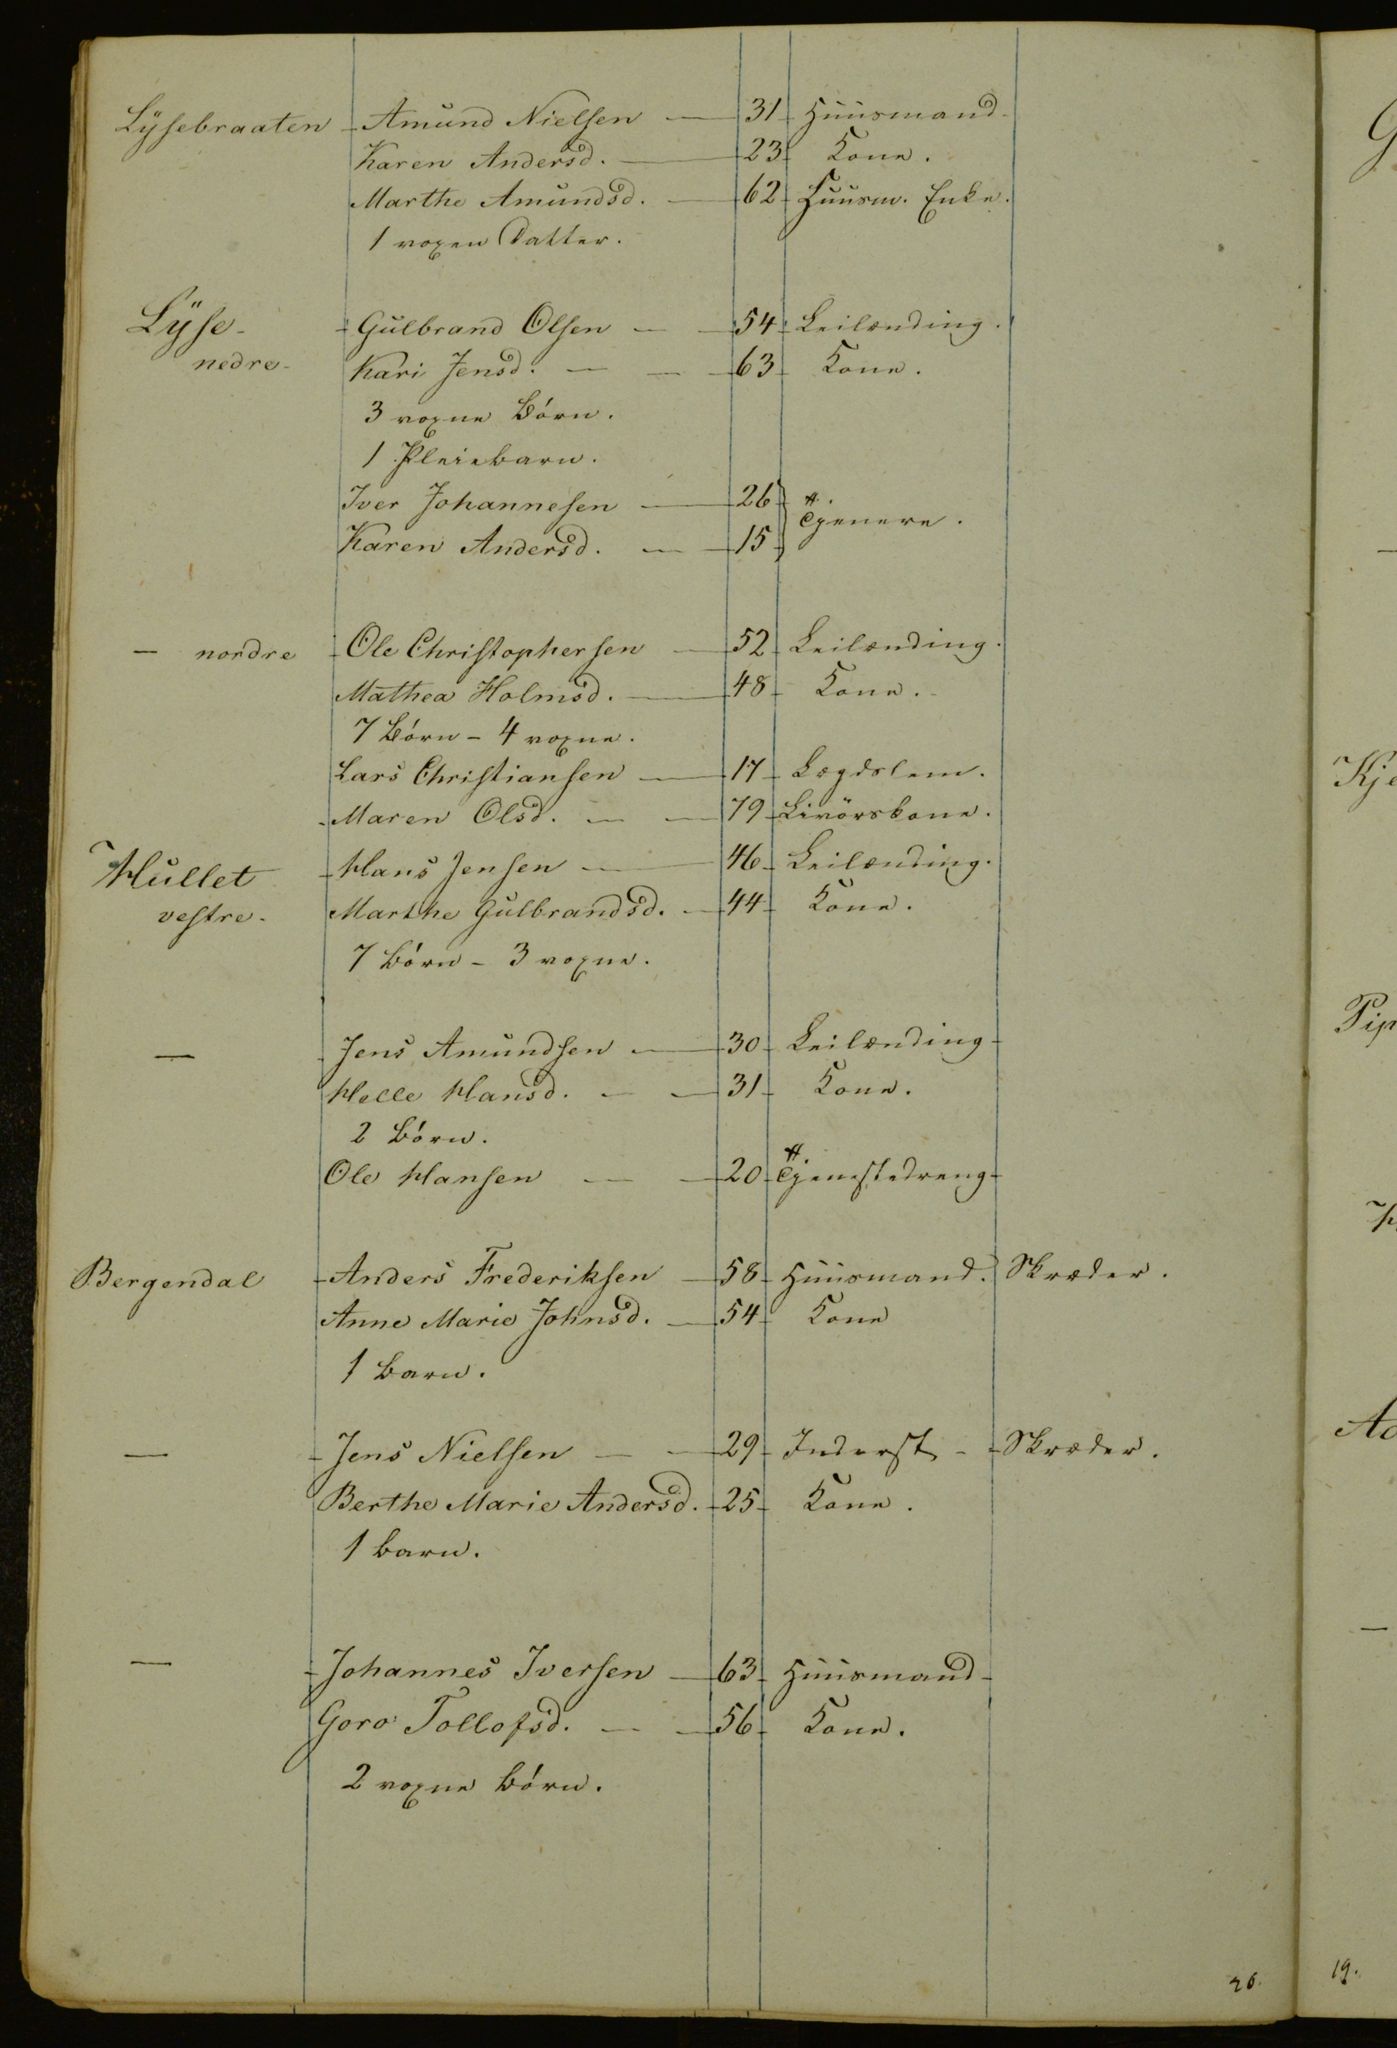 Lÿsebraaten - Amund Nielsen — 31 Huusmand.
Karen Andersd. — 23 Kone.
Marthe Amundsd. — 62 Huusm. Enke.
1 voxen Datter.
Lÿse - Gulbrand Olsen — 54 Leilænding.
nedre - Kari Jensd. — 63 Kone.
3 voxne Börn.
1 Pleiebarn.
Iver Johannesen — 26
Tjenere.
Karen Andersd. — 15
— nordre Ole Christophersen — 52 Leilænding.
Mathea Holmsd. — 48 Kone.
7 Börn - 4 voxne.
Lars Christiansen — 17 Lægdslem.
Maren Olsd. — 79 Livörskone.
Hullet - Hans Jensen — 46 Leilænding.
vestre. Marthe Gulbrandsd. — 44 Kone.
7 Börn - 3 voxne.
— Jens Amundsen — 30 Leilænding -
Helle Hansd. — 31 Kone.
2 Börn.
Ole Hansen — 20 Tjenestedreng -
Bergendal - Anders Frederiksen — 58 Huusmand. Skræder.
Anne Marie Johnsd. — 54 Kone
1 Barn.
— Jens Nielsen — 29 Inderst - Skræder.
Berthe Marie Andersd. 25 Kone.
1 Barn.
— Johannes Iversen — 63 Huusmand -
Goro Tollofsd. — 56 Kone.
2 voxne Börn.
26.
19.